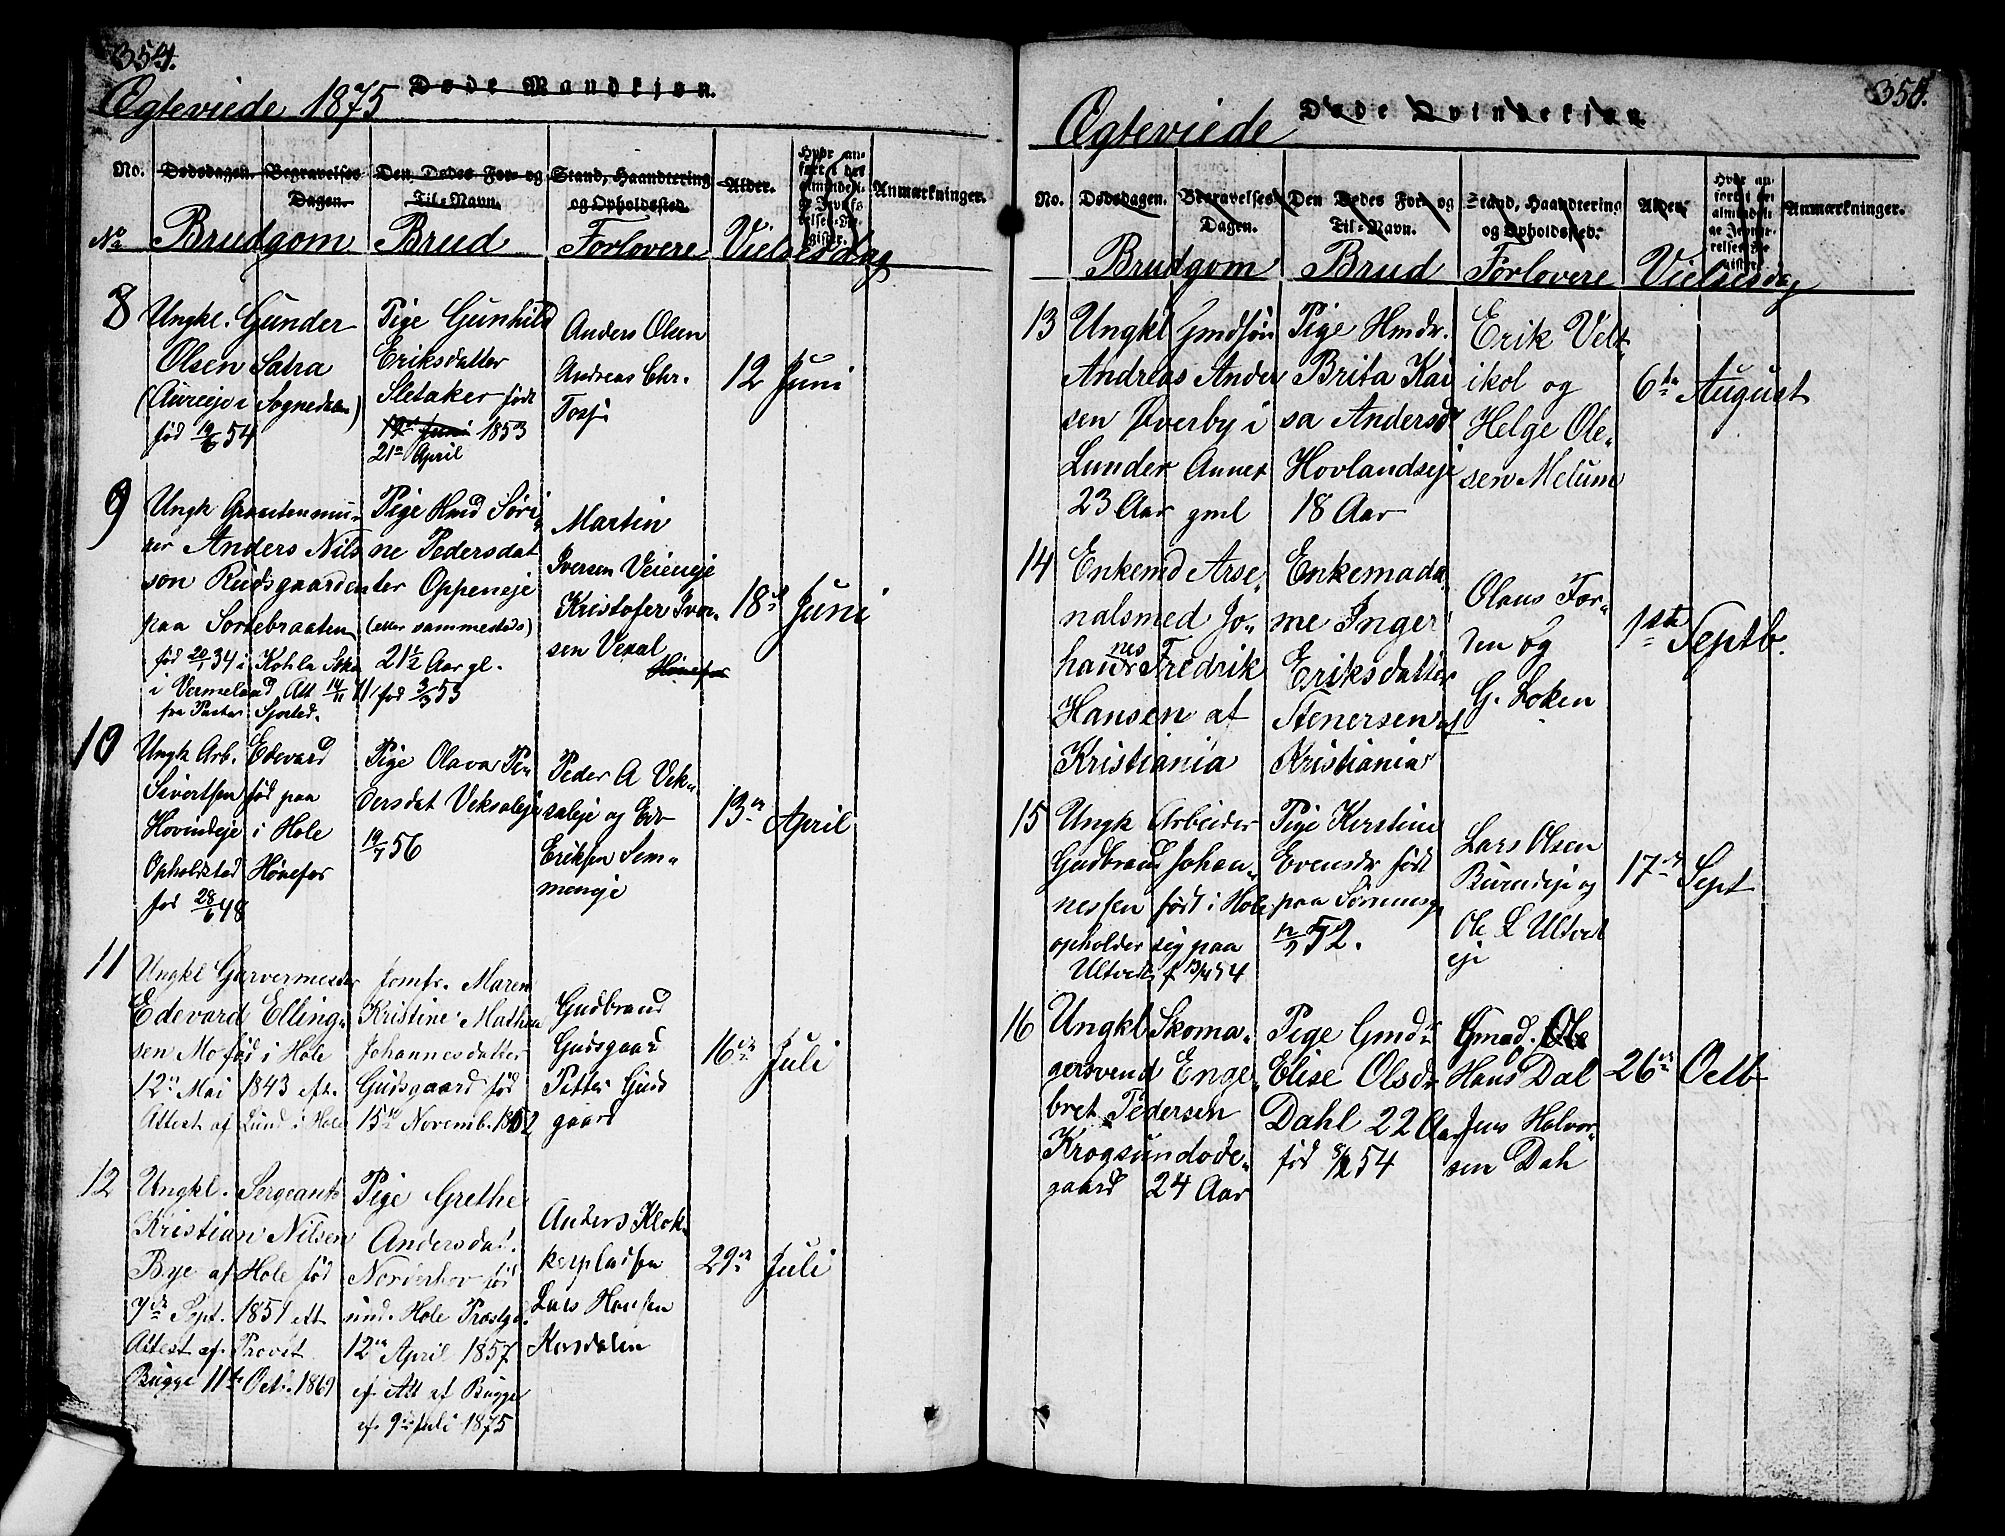 354.
Ægteviede 1875
Døde Mandkjøn.
No. Dødsdagen. Begravelses Dagen. Den Dødes For- og Til-Navn. Stand, Haandtering og Opholdssted. Alder. Anmærkninger.
No Brudgom Brud Forlovere Vielsesdag
8
Ungkl. Gunder
Olsen Satra
(Aureeje i Sognedalen)
fød 19/6 54
Pige Gunhild
Eriksdatter
Sletaker født
19de Juni 1853
21de April
Anders Olsen
Andreas Chr.
12 Juni
9
Ungk
Anders Nils
son Rudsgaarden
paa Sortebraaten
fød 20/1 34 i
i Vermeland Att 14/11 71
fra Pastor
Pige Hmd Søri-
ne Pedersdat
ter Oppeneje
(etter sammesteds)
21½ Aar gl.
fød 3/5 53
Martin
Iversen Veieneje
Kristofer Iver-
sen Vexal
Hønefos
18de Juni
10
Ungk Arb. Edevard
Sivertsen fød paa
Hovindeje i Hole
Opholdsted Hønefos
fød 28/6 48
Pige Olava Pe-
dersdat Veksaleje
19/7 56
Peder A Vek-
saleje og
Eriksen Sem-
meneje
13de April
11
Ungkl Garvermester
Edevard Elling-
sen Mo fød i Hole
12te Mai 1843 eft.
Attest af Lund i Hole
Jomfr. Maren
Kristine Mathea
Johannesdatter
Gudsgaard fød
15de Novemb. 1852
Gudbrand
Gudsgaard
Petter Guds
gaard
16de Juli
12
Ungkl. Sergeant
Kristian Nilsen
Bye af Hole fød
7de Sept. 1851 eft
Attest af Provst
Bugge 11te Oct. 1869
Pige Grethe
Andersdat.
Norderhov fød
und. Hole Præstgj.
12te April 1857
ef. Att af Bugge
af 9de Juli 1875
Anders Klok-
kerpladsen
Lars Hansen
Korsdalen
29de Juli
355.
Ægteviede
Døde Qvindekjøn.
No. Dødsdagen. Begravelses Dagen. Den Dødes For- og Til-Navn. Stand, Haandtering og Opholdssted. Alder. Anmærkninger.
Brudgom Brud Forlovere Vielsesdag
13
Ungkl Gmdsøn
Andreas Ander
sen Øverby i
Lunder Annex
23 Aar gml
Pige Hmdr.
Brita Kai
sa Andersd
Hovlandseje
18 Aar
Erik Velt-
ikol og
Helge Ole-
sen Melum
6te August
14
Enkemd Arse-
nalsmed Jo-
hannes Fredrik
Hansen af
Kristiania
Enkemada-
me Inger
Eriksdatter
Stenersen af
Kristiania
Olaus For-
den og
G. Loken
1ste Septb.
15
Ungk Arbeider
Gudbrand Johan-
nessen født i Hole
opholder sig paa
Ultvedt f 13/4 54
Pige Kirstine
Evensdr født
paa
12/7 52.
Lars Olsen
Bureneje og
Ole L Ultvet
eje
17de Sept
16
Ungkl Skoma-
gersvend Enge-
bret Pedersen
Krogsundøde-
gaard 24 Aar
Pige Gmdr
Elise Olsdr
Dahl 22 Aar
fød 8/2 54
Gmd. Ole
Hans Dal
Jens Halvor-
sen Dah
26de Octb